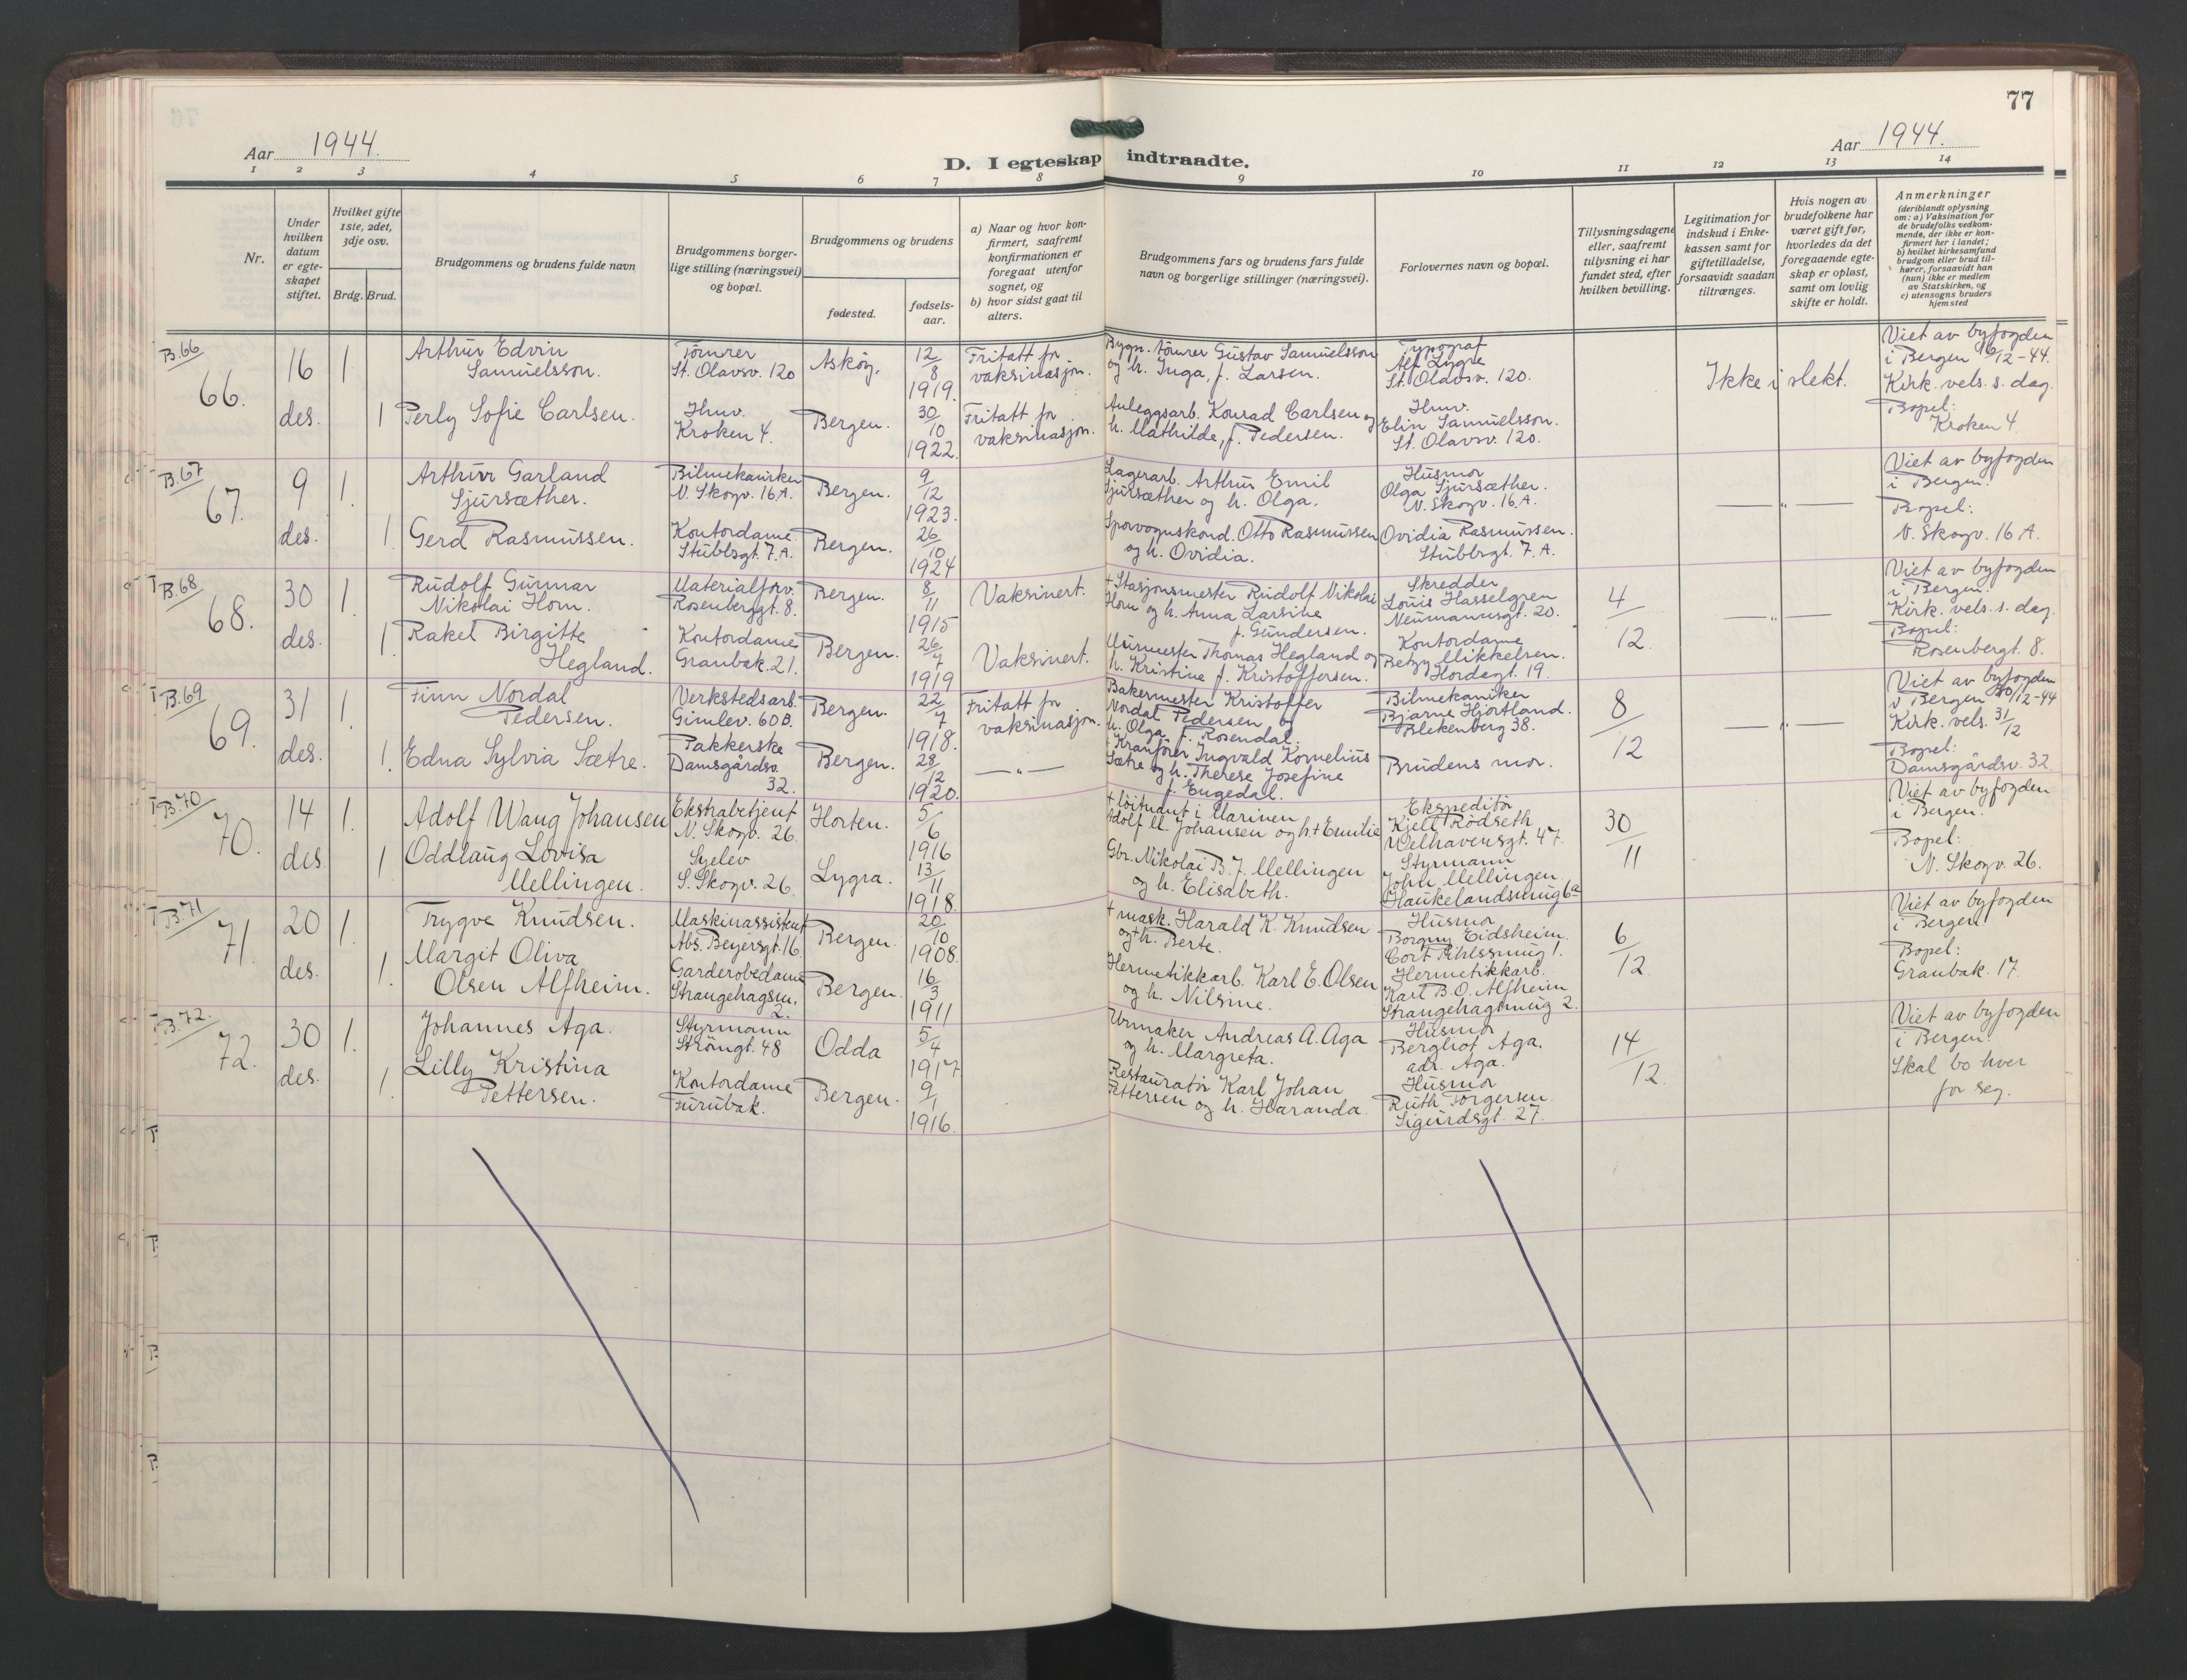 77
Aar 1944.
D. I egteskap indtraadte.
Aar 1944.
1 2 3 4 5 6 7 8 9 10 11 12 13 14
Nr.
Under hvilken datum er egteskapet stiftet.
Hvilket gifte 1ste, 2det, 3dje osv.
Brdg. Brud.
Brudgommens og brudens fulde navn
Brudgommens borgerlige stilling (næringsvei) og bopæl.
Brudgommens og brudens
fødested.
fødselsaar.
a) Naar og hvor konfirmert, saafremt konfirmationen er foregaat utenfor sognet, og
b) hvor sidst gaat til alters.
Brudgommens fars og brudens fars fulde navn og borgerlige stillinger (næringsvei).
Forlovernes navn og bopæl.
Tillysningsdagene eller, saafremt tillysning ei har fundet sted, efter hvilken bevilling.
Legitimation for indskud i Enkekassen samt for giftetilladelse, forsaavidt saadan tiltrænges.
Hvis nogen av brudefolkene har været gift før, hvorledes da det foregaaende egteskap er opløst, samt om lovlig skifte er holdt.
Anmerkninger
(deriblandt oplysning om: a) Vaksination for de brudefolks vedkommende, der ikke er konfirmert her i landet; b) hvilket kirkesamfund brudgom eller brud tilhører, forsaavidt han (hun) ikke er medlem av Statskirken, og c) utensogns bruders hjemsted
B.66
66.
16 des.
1
Arthur Edvin
Samuelsson.
Tömrer
St. Olavsv. 120
Askøy.
12/8 1919.
Fritatt for
vaksinasjon.
Bygn. tömrer Gustav Samuelsson
og h. Inga, f. Larsen.
Typograf
Alf Lygre
St. Olavsv. 120.
Ikke i slekt.
Viet av byfogden
i Bergen 16/12-44.
Kirk. vels. s. dag.
Bopel:
Kroken 4.
1
Perly Sofie Carlsen.
Husv.
Kroken 4.
Bergen.
30/10 1922.
Fritatt for
vaksinasjon.
Anleggsarb. Konrad Carlsen og
h. Mathilde, f. Pedersen.
Husv.
Elin Samuelsson.
St. Olavsv. 120.
B.67
67.
9 des.
1.
Arthur Garland
Sjursæther.
Bilmekaniker
N. Skogv. 16A.
Bergen.
9/12 1923.
Lagerarb. Arthur Emil
Sjursæther og h. Olga.
Husmor
Olga Sjursæther.
N. Skogv. 16.A.
— „ —
Viet av byfogden
i Bergen.
Bopel:
N. Skogv. 16 A.
1.
Gerd Rasmussen.
Kontordame
Stubbsgt. 7.A.
Bergen.
26/10 1924
Sporvognskond. Otto Rasmussen
og h. Ovidia.
Ovidia Rasmussen.
Stubbsgt. 7. A.
B.68
68.
30 des.
1.
Rudolf Gunnar
Nikolai Horn.
Materialforv.
Rosenberggt. 8.
Bergen.
8/11 1915
Vaksinert.
+ Stasjonsmester Rudolf Nikolai
Horn og h. Anna Larsine
f. Gundersen.
Skredder
Louis Hasselgren
Neumannsgt. 20.
4/12.
— „ —
Viet av byfogden
i Bergen.
Kirk. vels. s. dag.
Bopel:
Rosenbergt. 8.
1.
Rakel Birgitte
Hegland.
Kontordame
Granbak. 21.
Bergen.
26/7 1919
Vaksinert.
Murmester Thomas Hegland og
h. Kristine f. Kristoffersen.
Kontordame
Betzy Mikkelsen.
Hordagt. 19.
B.69
69.
31 des.
1.
Finn Nordal
Pedersen.
Verkstedsarb.
Gimlev. 60B.
Bergen.
22/7 1918.
Fritatt for
vaksinasjon.
Bakermester Kristoffer
Nordal Pedersen og
h. Olga f. Rosendal.
Bilmekaniker
Bjarne Hjortland.
Blekenberg 38.
8/12
— „ —
Viet av byfogden
i Bergen 30/12-44
Kirk. vels. 31/12
Bopel:
Damsgårdsv. 32.
1.
Edna Sylvia Sætre.
Pakkerske
Damsgårdsv.
32.
Bergen.
28/12 1920.
— „ —
+ Kranförer Ingvald Kornelius
Sætre og h. Therese Josefine
f. Engedal.
Brudens mor.
B.70
70.
14 des.
1.
Adolf Wang Johansen
Ekstrabetjent
N. Skogv. 26.
Horten.
5/6 1916
+ löitnant i Marinen
Adolf M. Johansen og h.+ Emilie
Ekspeditör
Kjell Rödseth
Welhavensgt. 47.
30/11
Viet av byfogden
i Bergen.
Bopel:
N. Skogv. 26.
1
Oddlaug Lovisa
Mellingen.
Syelev
S. Skogv. 26.
Lygra.
13/11 1918.
Gbr. Nikolai B. J. Mellingen
og h. Elisabeth.
Styrmann
John Mellingen
Haukelandsmug 6a
B.71
71.
20 des.
1.
Trygve Knudsen.
Maskinassistent
Abs. Beyersgt. 16.
Bergen.
20/10 1908.
+ mask. Harald K. Knudsen
og + h. Berte.
Husmor
Borgny Eidsheim.
Cort Pihlssmug 1.
6/12.
Viet av byfogden
i Bergen.
Bopel:
Granbak. 17.
1.
Margit Oliva
Olsen Alfheim.
Garderobedame
Strangehagsm.
2.
Bergen.
16/3 1911
Hermetikkarb. Karl E. Olsen
og h. Nilsine.
Hermetikkarb.
Karl B.O. Alfheim
Strangehagsmug 2.
B.72.
72.
30 des.
1.
Johannes Aga.
Styrmann
Strömgt. 48
Odda
5/4 1917
Urmaker Andreas A. Aga
og h. Margreta.
Husmor
Bergliot Aga.
adr. Aga.
14/12.
Viet av byfogden
i Bergen.
Skal bo hver
for seg.
1.
Lilly Kristina
Pettersen.
Kontordame
Furubak.
Bergen.
9/1 1916.
Restauratör Karl Johan
Pettersen og h. Haranda.
Husmor
Ruth Torgersen.
Sigurdsgt. 27.